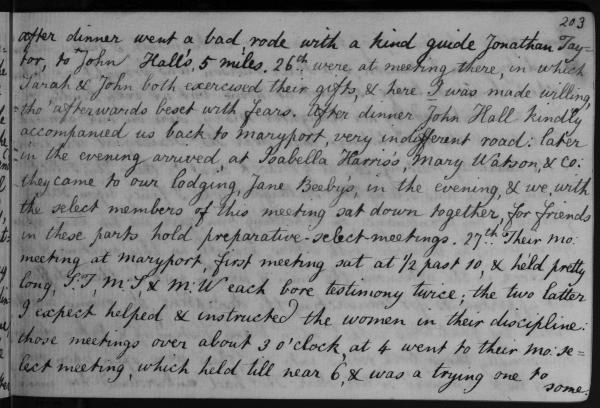 203
after dinner went a bad rode with a kind guide Jonathan Tay=
lor, to John Hall's, 5 miles. 26th were at meeting there, in which
Sarah & John both exercised their gifts, & here I was made willing,
tho' afterwards beset with fears. After dinner John Hall kindly
accompanied us back to maryport, very indifferent road: later
in the evening arrived at Isabella Harris's, Mary Watson, & Co:
they came to our lodging, Jane Beeby's, in the evening, & we, with
the select members of this meeting sat down together, for friends
in these parts hold preparative-select-meetings. 27th Their mo:
meeting at maryport, first meeting sat at 1/2 past 10, & held pretty
long, S:T, M:S, & M:W each bore testimony twice; the two latter
I expect helped & instructed the women in their discipline:
those meetings over about 3 o'clock, at 4 went to their mo: se=
lect meeting, which held till near 6, & was a trying one to
some